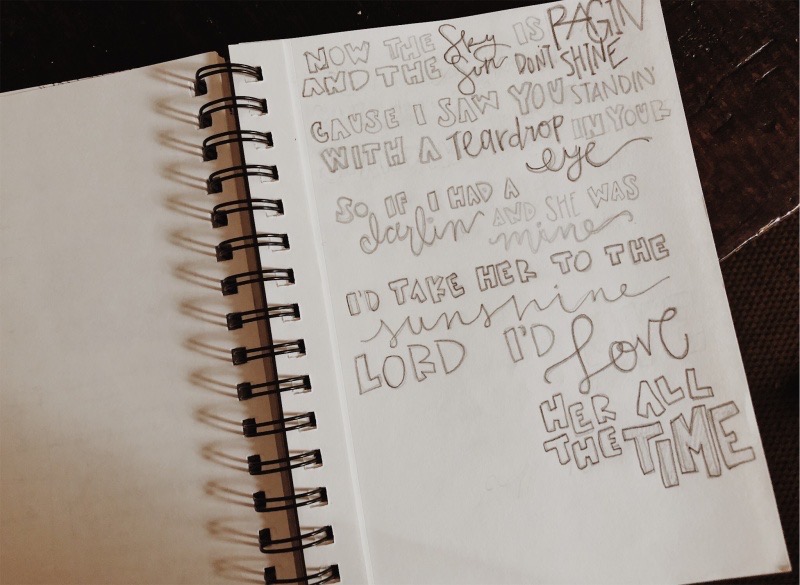 NOW THE Sky IS RAGIN
AND THE Sun DONT SHINE
CAUSE I SAW YOU STANDIN'
WITH A TEARDROP IN YOUR
eye
SO IF I HAD A
darlin AND SHE WAS
mine
I'D TAKE HER TO THE
sunshine
LORD I'D Love
HER ALL
THE TIME